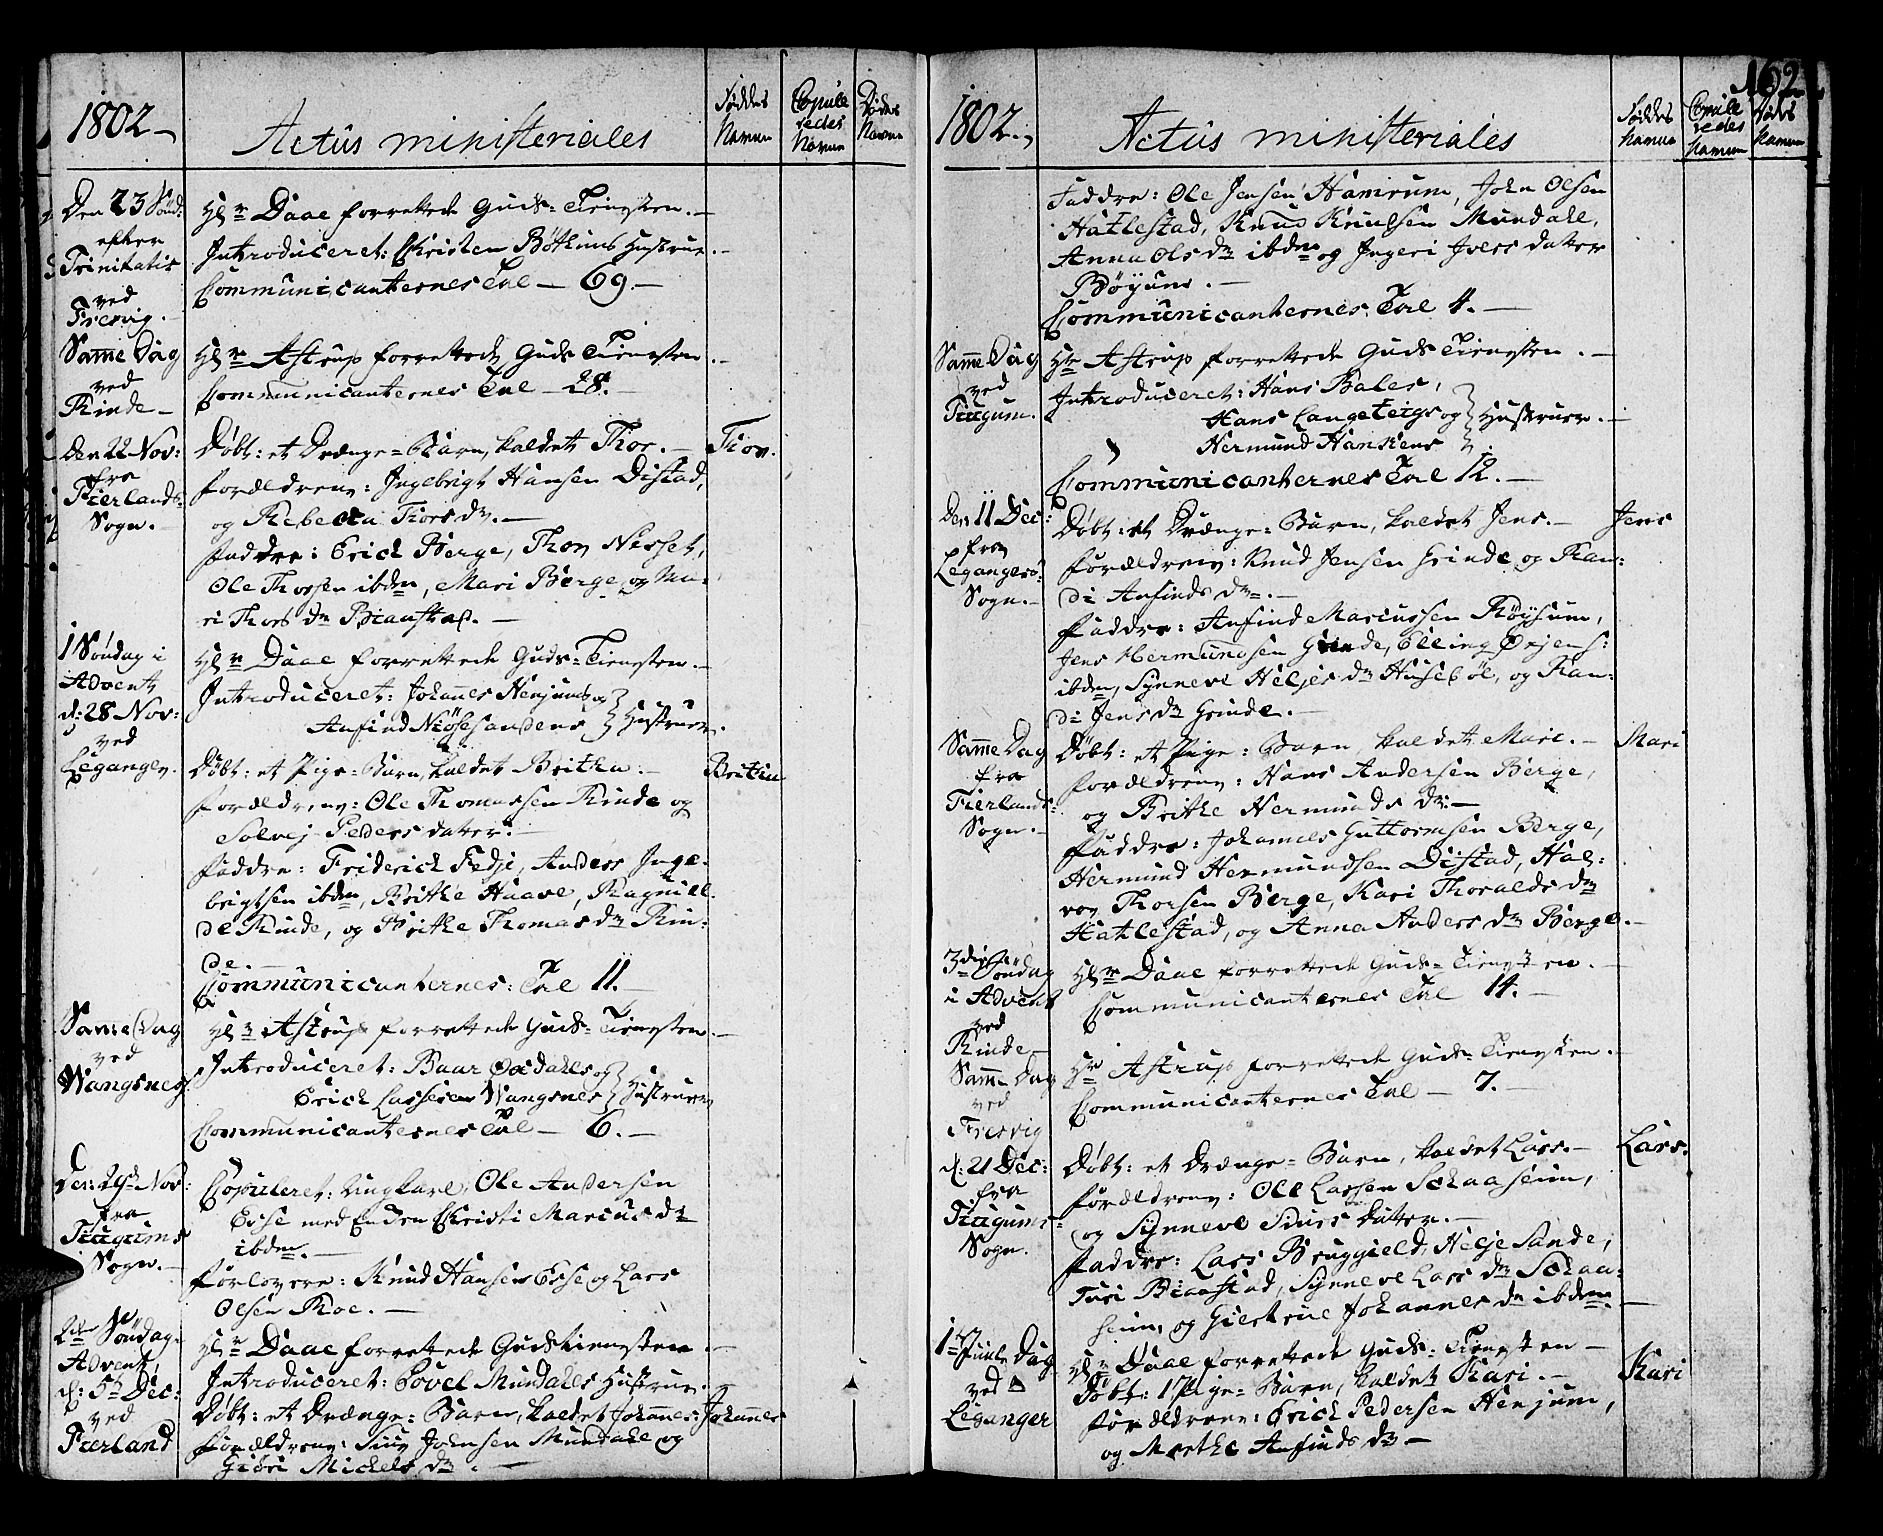 1802
Actus ministeriales
Føddes Navne
Copule redes Navne
Dødes Navne
Den 23 Sønd:
efter
Trinitatis
ved
Fresvig.
Hl r Daae forrettede Guds-Tienesten.
Introduceret: Christen Böthuns Hustrue.
Communicanternes Tal - 69.
Samme Dag
ved
Rinde
Hl r Astrup forrettede Guds Tienesten
Communicanternes Tal - 28.
Den 22 Nov:
fra
Fierlands
Sogn.
Døbt: et Drænge-Barn, kaldet Thor.
Thor.
forældrene: Ingebrigt Hansen Distad,
og Rebecka Thorsdr.
Faddre: Erick Berge, Thor Nesset,
Ole Thorsen ibdm, Mari Berge, og Ma-
ri Thors dr Bianstad.
1 Søndag i
Advent
d: 28 Nov:
ved
Leganger.
Hl r Daae forrettede Guds-Tienesten.
Introduceret: Johannes Henjums og
Anfind Niøsesandens } Hustruer.
Døbt: et Pige-Barn, kaldet Britha.
Britha
forældrene: Ole Thomassen Rinde og
Solvej Peders datter.
Faddre: Friderich Fedje, Anders Inge-
brigtsen ibdm, Brithe Haave, Ragnill-
de Rinde, og Brithe Thomas dr Rin-
de
Communicanternes: Tal 11.
Samme Dag
ved
Wangsnes.
Hl r Astrup forrettede Guds-Tienesten.
Introduceret: Baar Ordahls og
Erick Lassesen Wangsnes } Hustruer
Communicanternes Tal - 6.
Den: 29de Nov:
fra
Tiugums
Sogn.
Copuleret: Ungkarl, Ole Andersen
Esse med Enken Christi Marcus dr
ibdm.
Forlovere: Knud Hansen Esse og Lars
Olsen Roe.
2den Søndag
Advent,
d: 5te Dec:
ved
Fierland
Hl r Daae forrettede Gudstienesten
Introduceret: Eovel Mundahls Hustrue.
Døbt: et Drænge-Barn, kaldet Johannes:
Johannes
forældrene: Siur Johnsen Mundahl og
Giøri Mickels dr.
162
1802.
Actus ministeriales
Føddes Navne
Copule redes Navne
Dødes Navne
Faddre: Ole Jensen Hamrum, John Olsen
Hatlestad, Knud Knudsen Mundahl,
Anna Ols dr ibdm og Ingeri Ivers datter
Bøyum.
Communicanternes Tal 4.
Samme Dag
ved
Tiugum.
Hr Astrup forrettede Guds Tienesten.
Introduceret: Hans Bales,
Hans Langeteigs og
Hermund Hanssens } Hustruer.
Communicanternes Tal 12.
Den 11 Dec:
fra
Legangers
Sogn.
Døbt: et Drænge-Barn, kaldet Jens.
Jens
forældrene: Knud Jensen Grinde og Ran-
di Anfinds dr.
Faddre: Anfind Marcussen Røysum,
Jens Hermundsen Grinde, Elling Ørjens:
ibdm, Synneve Heljes dr Husebøe, og Ran-
di Jens dr Grinde.
Samme Dag
fra
Fierlands
Sogn.
Døbt: et Pige-Barn, kaldet Mari.
Mari
forældrene: Hans Andersen Berge,
og Brithe Hermunds dr.
Faddre: Johannes Guttormsen Berge,
Hermund Hermundsen Distad, Hal-
vor Thorsen Berge, Kari Thoralds dr
Hatlestad, og Anna Anders dr Berge.
3die Søndag
i Advent
ved
Rinde
Hl r Daae forrettede Guds-Tienesten.
Communicanternes Tal 14.
Samme Dag
ved
Fresvig
Hr Astrup forrettede Guds-Tienesten.
Communicanternes Tal - 7.
d: 21 Dec:
fra
Tiugums
Sogn.
Døbt: et Drænge-Barn, kaldet Lars.
Lars.
forældrene: Ole Lassen Schaaseim,
og Synneve Siurs Datter.
Faddre: Lars Bruggield, Helje Sande,
Turi Bianstad, Synneve Lars dr Schaa-
seim, og Giertrue Johannes dr ibdm.
1ste Juule Dag
ved
Leganger
Hl r Daae forrettede Guds-Tienesten
Døbt: 1 Pige-Barn, kaldet Kari.
Kari
forældrene: Erick Pedersen Henjum,
og Marthe Anfinds dr